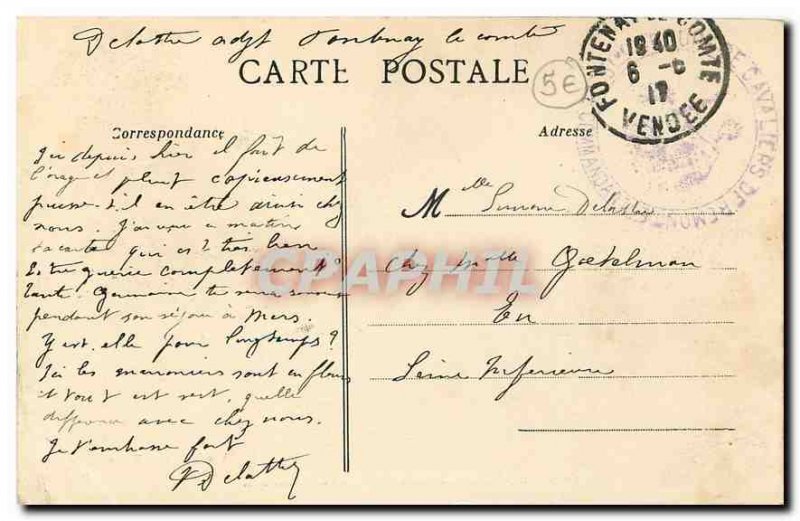 Delattre adjt Fontenay le comte
CARTE POSTALE
5€
FONTENAY LE COMTE
19 40
6 - 6
17
VENDÉE
CAVALIERS DE REMONTE
COMMANDANT
Correspondance
Adresse
Ici depuis hier il fait de
l'orage et pleut copieusement
puisse-t-il en être ainsi chez
vous. J'ai reçu ce matin
ta carte qui est très bien
Es tu guérie complètement ?
Tante Germaine te sera
pendant son séjour à Mers.
Y est-elle pour longtemps ?
Ici les marronniers sont en fleurs
et tout est vert, quelle
différence avec chez nous.
Je t'embrasse fort
Delattre
Melle Simone Delattre
Chez Melle
Eu
Seine Inférieure
CPAPHIL